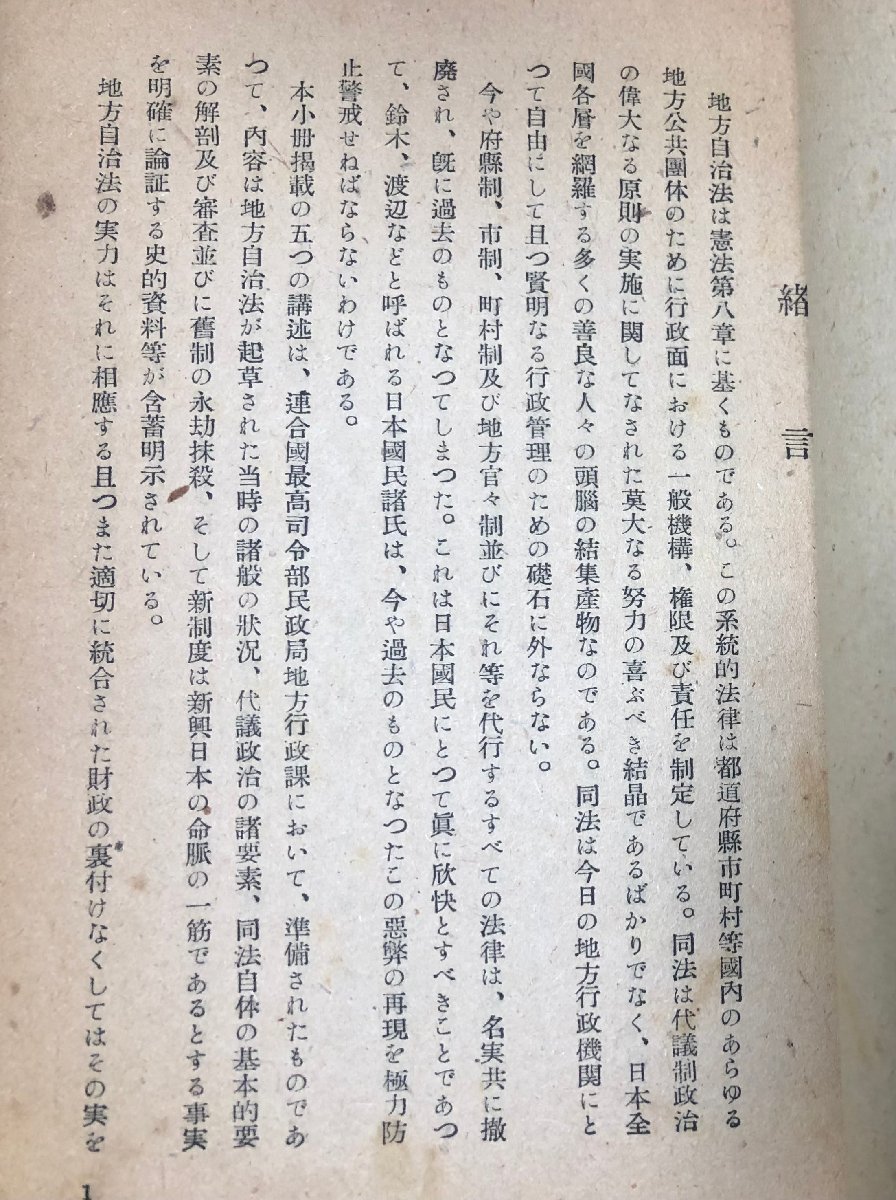 緒言
地方自治法は憲法第八章に基くものである。この系統的法律は都道府縣市町村等國內のあらゆる
地方公共團体のために行政面における一般機構、権限及び責任を制定している。同法は代議制政治
の偉大なる原則の実施に関してなされた莫大なる努力の喜ぶべき結晶であるばかりでなく、日本全
國各層を網羅する多くの善良な人々の頭腦の結集産物なのである。同法は今日の地方行政機関にと
つて自由にして且つ賢明なる行政管理のための礎石に外ならない。
今や府縣制、市制、町村制及び地方官々制並びにそれ等を代行するすべての法律は、名実共に撤
廃され、旣に過去のものとなつてしまつた。これは日本國民にとつて眞に欣快とすべきことであつ
て、鈴木、渡辺などと呼ばれる日本國民諸氏は、今や過去のものとなつたこの惡弊の再現を極力防
止警戒せねばならないわけである。
本小冊揭載の五つの講述は、連合國最高司令部民政局地方行政課において、準備されたものであ
つて、內容は地方自治法が起草された当時の諸般の狀況、代議政治の諸要素、同法自体の基本的要
素の解剖及び審査並びに舊制の永劫抹殺、そして新制度は新興日本の命脈の一筋であるとする事実
を明確に論証する史的資料等が含蓄明示されている。
地方自治法の実力はそれに相應する且つまた適切に統合された財政の裏付けなくしてはその実を
1